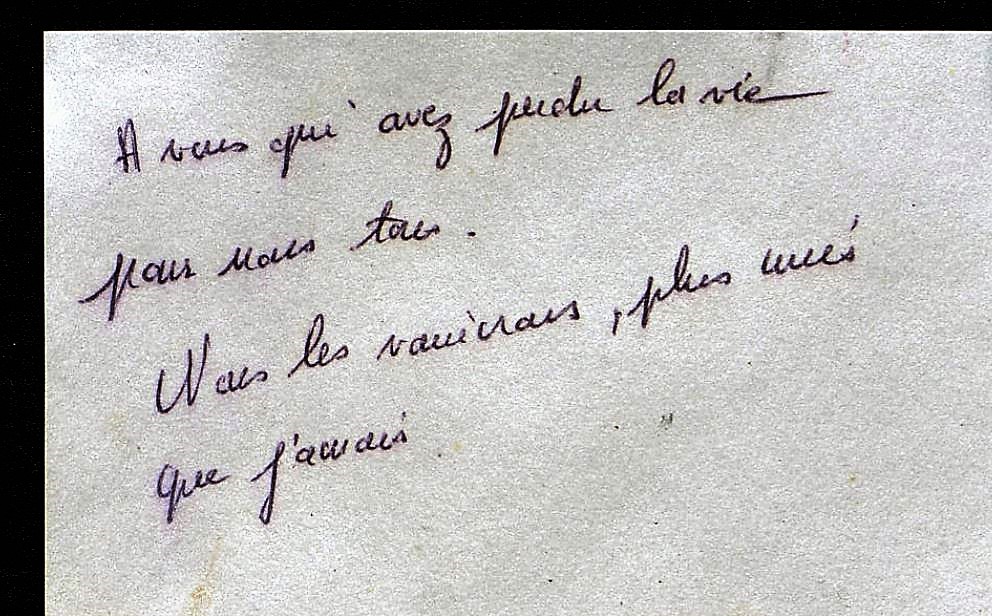 A vous qui avez perdu la vie
pour nous tous.
Nous les vaincrons, plus unis
que jamais